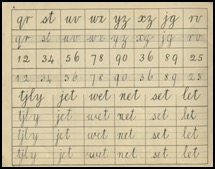 qr st uv wx yz xz jg rv
qr st uv wx yz xz jg rv
12 34 56 78 90 36 89 25
12 34 56 78 90 36 89 25
tjly jet wet net set let
tjly jet wet net set let
tjly jet wet net set let
tjly jet wet net set let